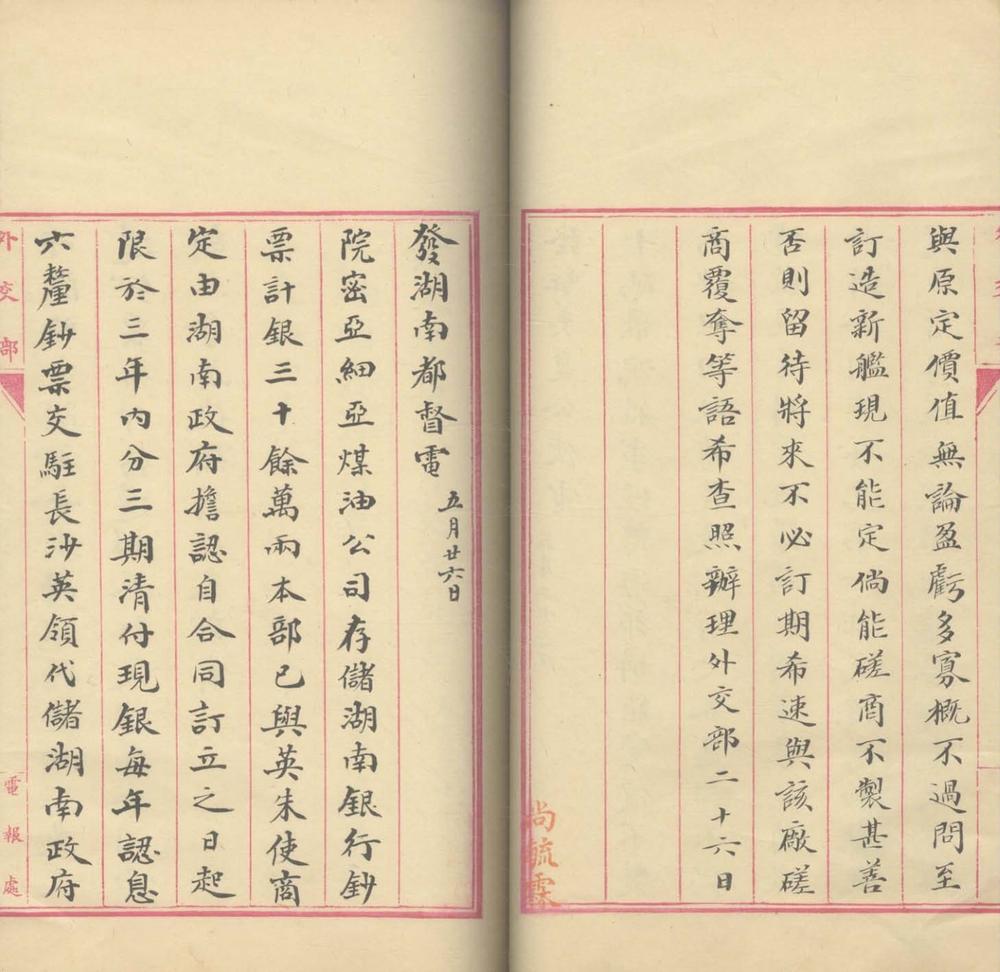 與原定價值無論盈虧多寡概不過問至
訂造新艦現不能定倘能磋商不製甚善
否則留待將來不必訂期希速與該廠磋
商覆奪等語希查照辦理外交部二十六日
尚毓霖
發湖南都督電 五月廿六日
院密亞細亞煤油公司存儲湖南銀行鈔
票計銀三十餘萬兩本部已與英朱使商
定由湖南政府擔認自合同訂立之日起
限於三年內分三期清付現銀每年認息
六釐鈔票交駐長沙英領代儲湖南政府
外交部
電報處